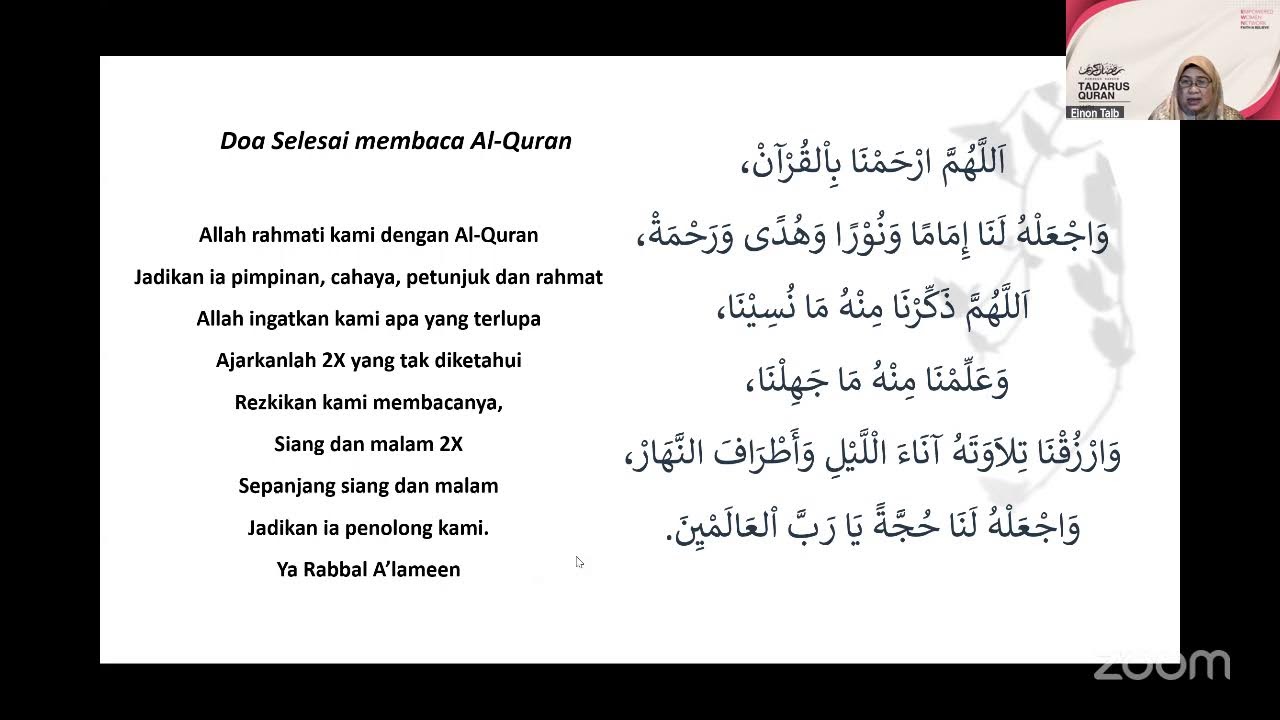 Doa Selesai membaca Al-Quran
Allah rahmati kami dengan Al-Quran
Jadikan ia pimpinan, cahaya, petunjuk dan rahmat
Allah ingatkan kami apa yang terlupa
Ajarkanlah 2X yang tak diketahui
Rezkikan kami membacanya,
Siang dan malam 2X
Sepanjang siang dan malam
Jadikan ia penolong kami.
Ya Rabbal A’lameen
اَللَّهُمَّ ارْحَمْنَا بِاْلقُرْآنْ،
وَاجْعَلْهُ لَنَا إِمَامًا وَنُوْرًا وَهُدًى وَرَحْمَةْ،
اَللَّهُمَّ ذَكِّرْنَا مِنْهُ مَا نُسِيْنَا،
وَعَلِّمْنَا مِنْهُ مَا جَهِلْنَا،
وَارْزُقْنَا تِلاَوَتَهُ آنَاءَ الْلَّيْلِ وَأَطْرَافَ النَّهَارْ،
وَاجْعَلْهُ لَنَا حُجَّةً يَا رَبَّ اْلعَالَمْيِنَ.
EMPOWERED
WOMEN
NETWORK
FAITH & BELIEVE
TADARUS
QURAN
Elnon Talb
zoom